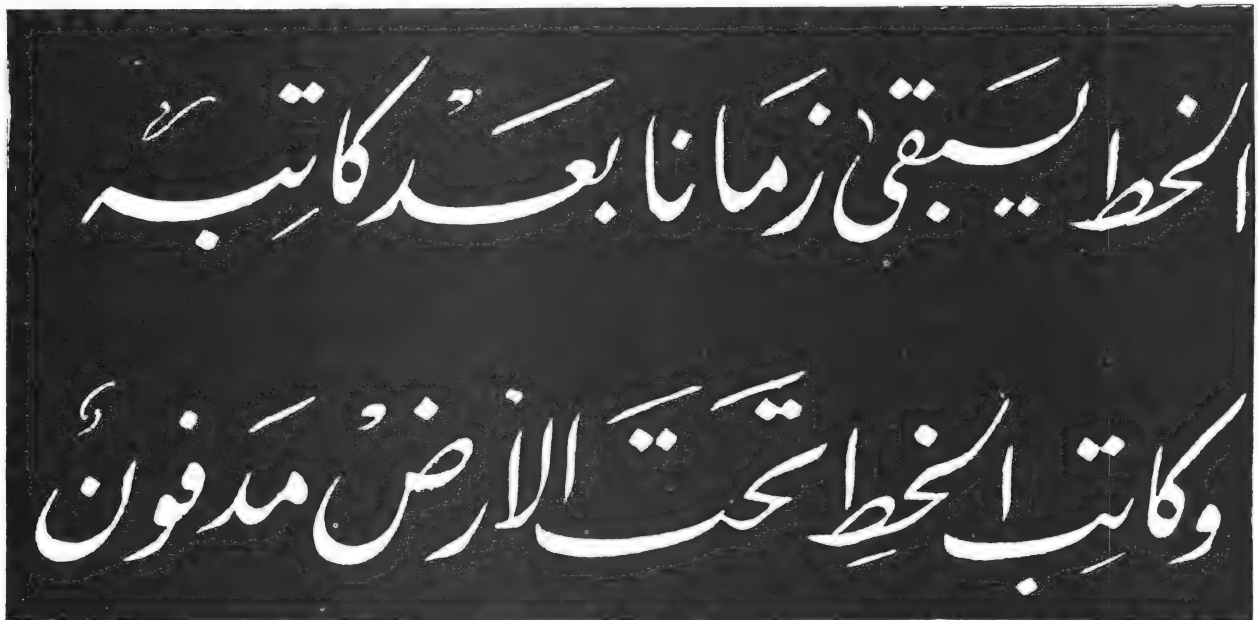 الخط يَبقىٰ زمَانا بعَدْ كاتِبهٌ
وكاتِب الخطِ تحَتَ الأرضْ مَدفونٌ